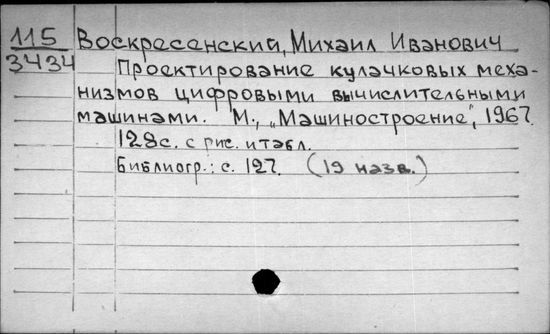 115 Воскресенский, Михаил Иванович
3434 Проектирование кулачковых меха-
низмов цифровыми вычислительными
машинами. М., „Машиностроение", 1967.
128с. с рис. и табл.
Библиогр.: с. 127. (19 назв.)